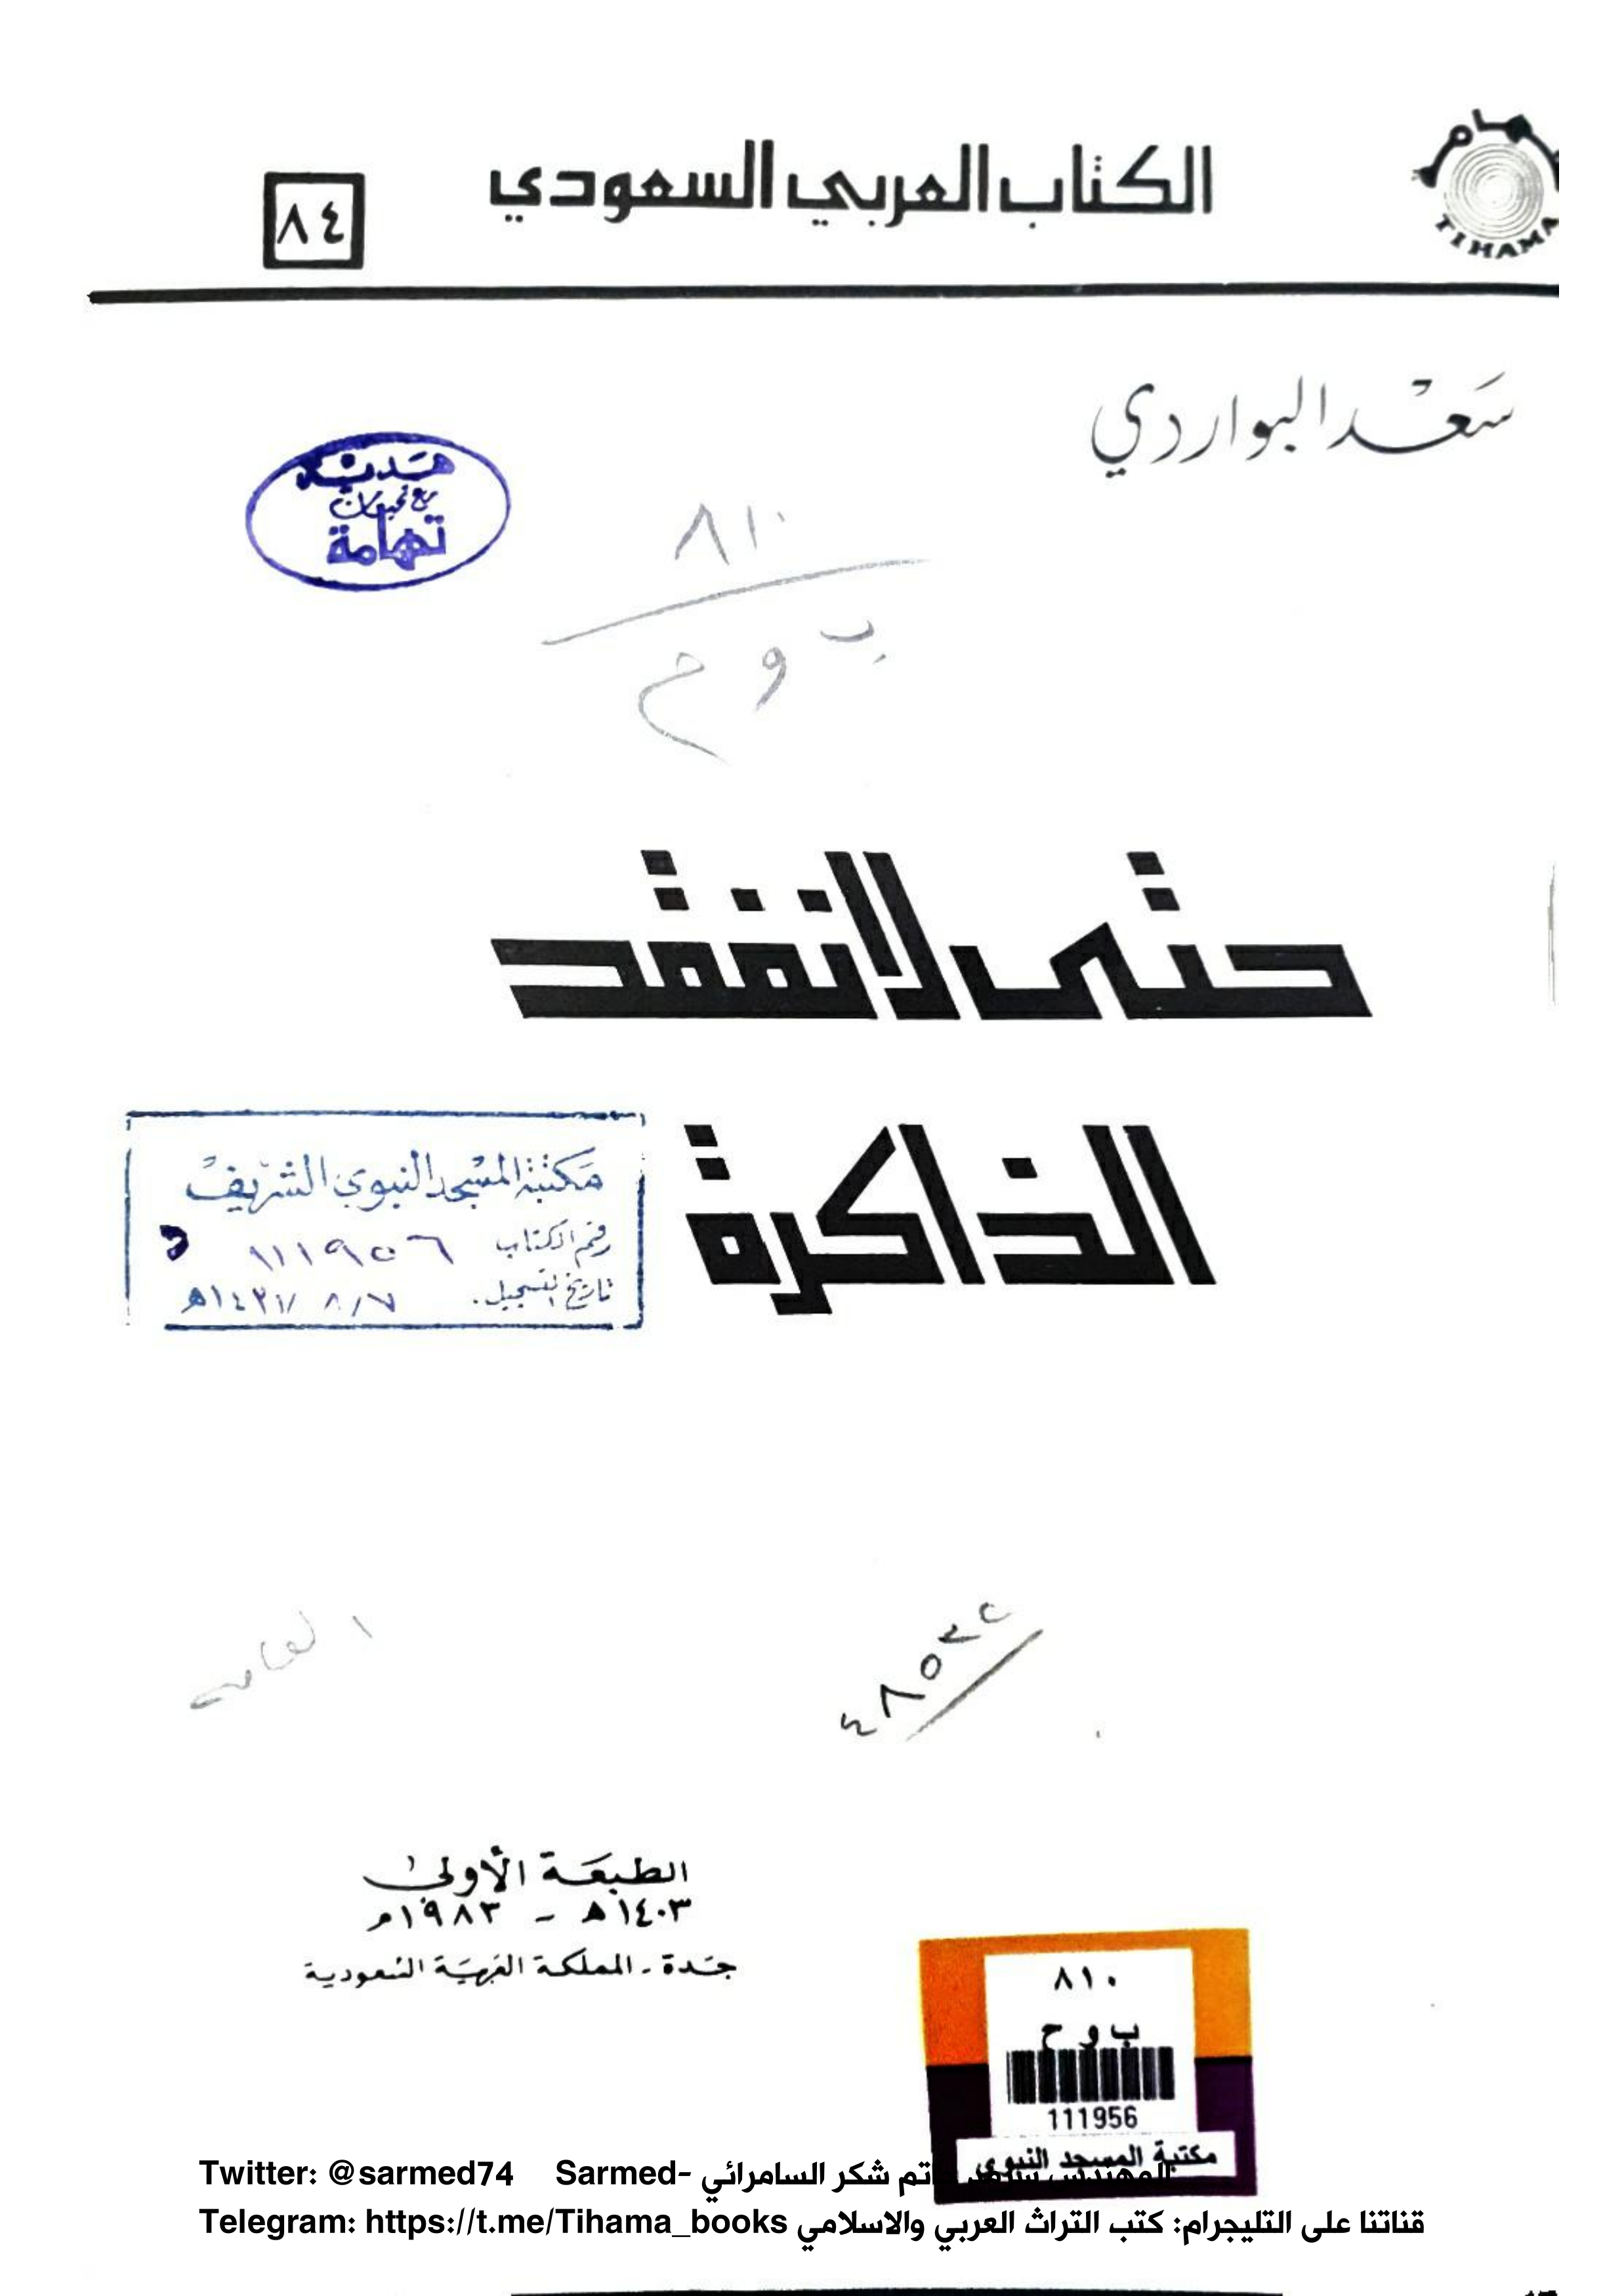 تهامة
TIHAMA
الكتاب العربي السعودي
٨٤
سعد البواردي
هدية
مع تحيات
تهامة
٨١٠
ب و ح
حتى لا نفقد
الذاكرة
مكتبة المسجد النبوي الشريف
رقم الكتاب ١١١٩٥٦
تاريخ التسجيل ٧/ ٨/ ١٤٣١هـ
الطبعة الأولى
١٤٠٣هـ - ١٩٨٣م
جدة - المملكة العربية السعودية
٨١٠
ب و ح
111956
مكتبة المسجد النبوي
Twitter: @sarmed74 Sarmed- المهندس سرمد حاتم شكر السامرائي
Telegram: https://t.me/Tihama_books قناتنا على التليجرام: كتب التراث العربي والاسلامي